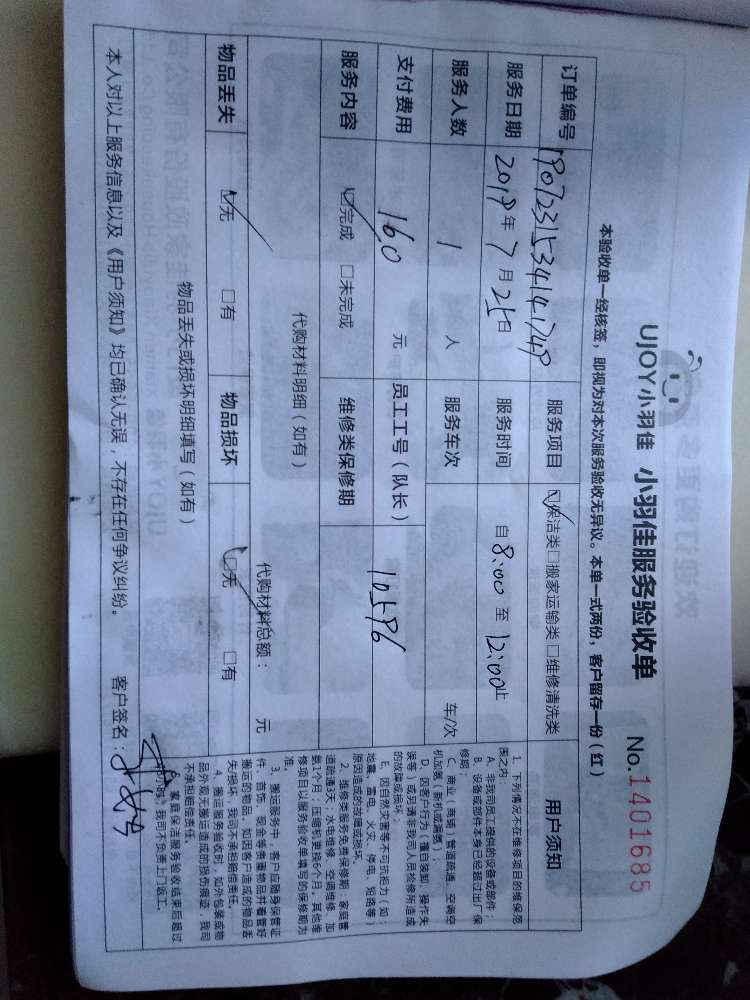 UJOY小羽佳 小羽佳服务验收单 No.1401685
本验收单一经核签，即视为对本次服务验收无异议。本单一式两份，客户留存一份（红）
订单编号 1907231534141749 服务项目 ☑保洁类□搬家运输类□维修清洗类
服务日期 2019年7月25日 服务时间 自8:00至12:00止
服务人数 1 人 服务车次 车/次
支付费用 160 元 员工工号（队长） 10596
服务内容 ☑完成 □未完成 维修类保修期
代购材料明细（如有） 代购材料总额： 元
物品丢失 ☑无 □有 物品损坏 ☑无 □有
物品丢失或损坏明细填写（如有）
本人对以上服务信息以及《用户须知》均已确认无误，不存在任何争议纠纷。 客户签名：
用户须知
1、下列情况不在维修项目的维保范
围之内
A、非我司员工提供的设备或部件；
B、设备或部件本身已经超过出厂保
修期；
C、商业（商铺）管道疏通、空调空
机加氨（新机或漏氨）；
D、因客户行为（擅自装卸、操作失
误等）或另请非我司人员检修所造成
的故障或损坏；
E、因自然灾害等不可抗拒力（如：
地震、雷电、火灾、停电、短路等）
原因造成的故障或损坏。
2、维修类服务免费保修期：家庭管
道疏通3天；水电维修、空调维修、加
氨1个月；压缩机更换6个月；其他维
修项目以服务验收单填写的保修期为
准。
3、搬运服务中，客户应随身保管证
件、首饰、现金等贵重物品并看管好
搬运的物品，如因客户造成的物品丢
失/损坏，我司不承担赔偿责任。
4、搬运服务验收时，如外包装或物
品外观无搬运造成的损伤痕迹，我司
不承担赔偿责任。
家庭保洁服务验收结束后超过
小时，我司不负责上门返工。